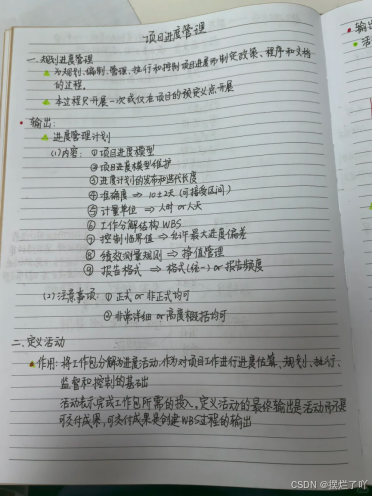 项目进度管理
一.规划进度管理
为规划、编制、管理、执行和控制项目进度而制定政策、程序和文档
的过程。
本过程只开展一次或仅在项目的预定义点开展
输出:
进度管理计划
(1)内容: ①项目进度模型
②项目进度模型维护
③进度计划的发布和迭代长度
④准确度 => 10±2天(可接受区间)
⑤计量单位 => 人时 or 人天
⑥工作分解结构WBS
⑦控制临界值 => 允许最大进度偏差
⑧绩效测量规则 => 挣值管理
⑨报告格式 => 格式(统一) or 报告频度
(2)注意事项: ①正式 or 非正式均可
②非常详细 or 高度概括均可
二.定义活动
作用: 将工作包分解为进度活动,作为对项目工作进行进度估算、规划、执行、
监督和控制的基础
活动表示完成工作包所需的投入。定义活动的最终输出是活动而不是
可交付成果,可交付成果是创建WBS过程的输出
输出
活
CSDN @摆烂了吖